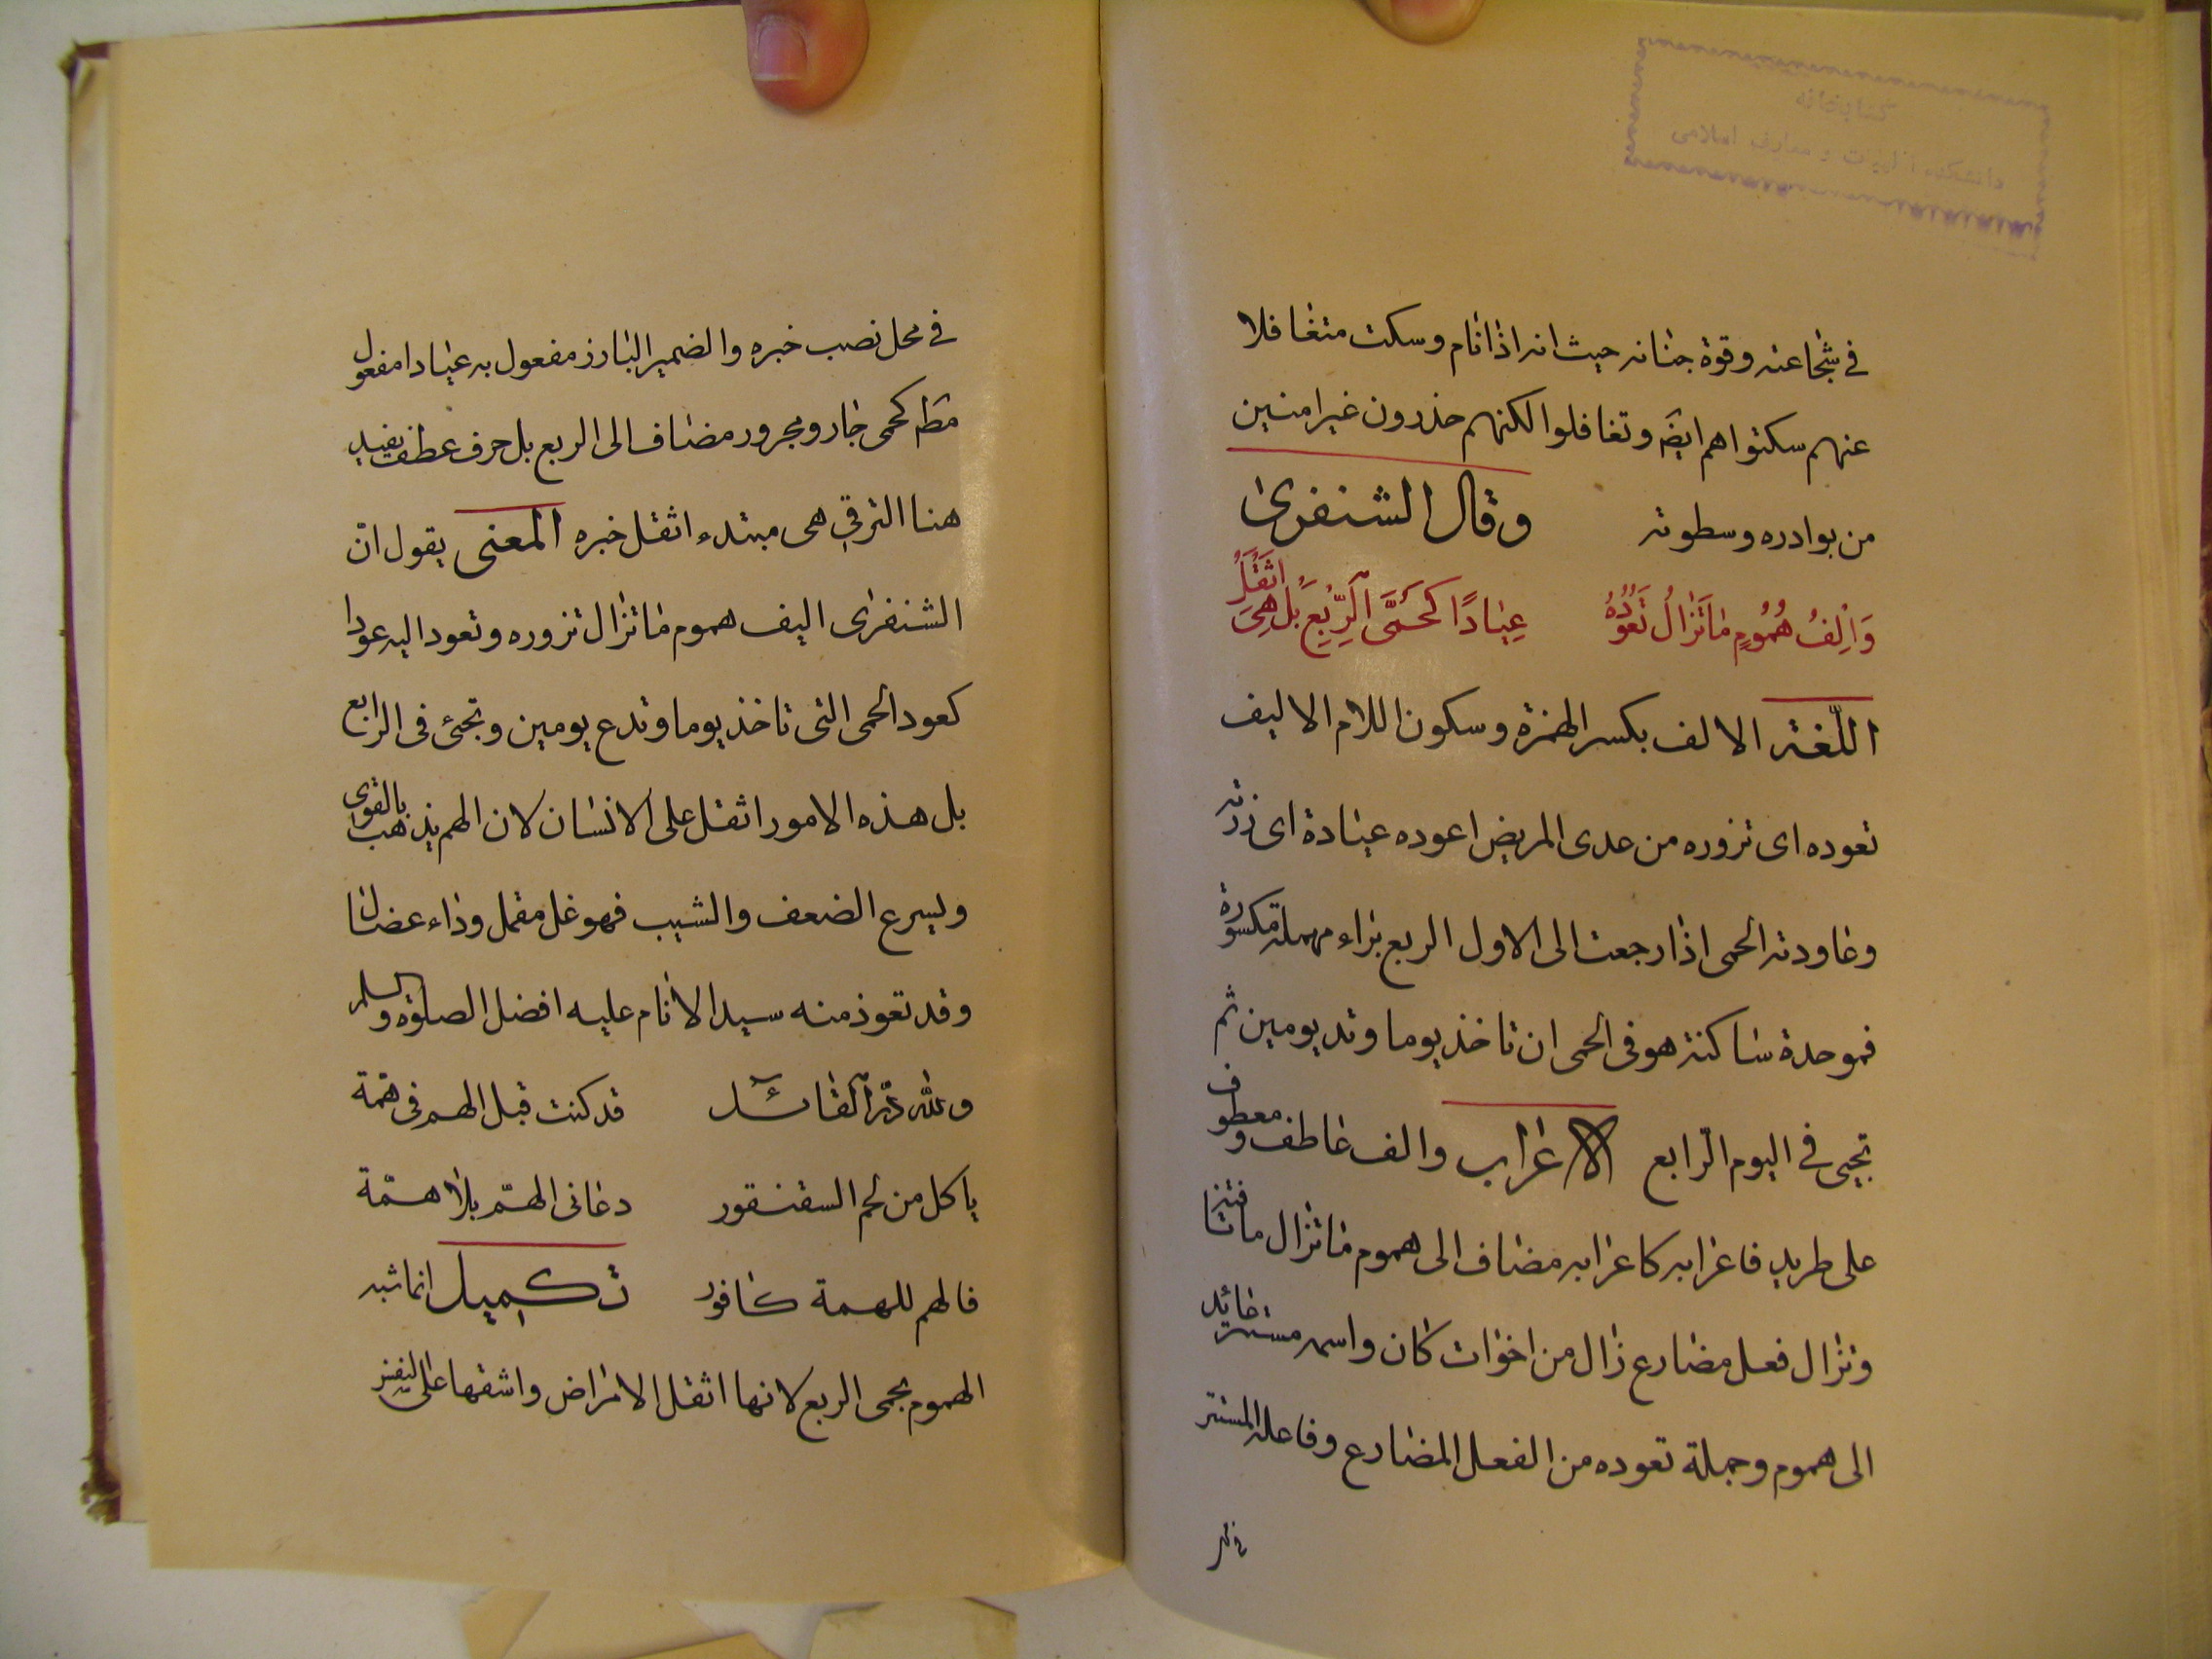 كتابخانه
دانشكده الهيات و معارف اسلامى
فى شجاعته وقوة جنانه حيث انه اذا نام وسكت متغافلا
عنهم سكتوا هم ايضَ وتغافلوا لكنهم حذرون غير امنين
من بوادره وسطوته وقال الشنفرى
وَاِلْفُ هُمُومٍ مٰا تَزٰالُ تَعُودُهُ عِيٰادًا كَحُمَّى الرِّبْعِ بَل هِىَ اَثْقَلُ
اللّغة الالف بكسر الهمزة وسكون اللام الاليف
تعوده اى تزوره من عدى المريض اعوده عيادة اى زرته
وعاودته الحمى اذا رجعت الى الاول الربع براء مهملة مكسورة
فموحدة ساكنة هو فى الحمى ان تاخذ يوما وتد يومين ثم
تجيى فى اليوم الرابع الاعراب والف عاطف ومعطوف
على طريد فاعرابه كاعرابه مضاف الى هموم ما تزال ما نا
وتزال فعل مضارع زال من اخوات كان واسمه مستتر عائد
الى هموم وجملة تعوده من الفعل المضارع وفاعله المستتر
فى محل نصب خبره والضمير البارز مفعول به عيادا مفعول
مطَ كحمى جار ومجرور مضاف الى الربع بل حرف عطف يفيد
هنا الترقى هى مبتدء اثقل خبره المعنى يقول ان
الشنفرى اليف هموم ما تزال تزوره وتعود اليه عودا
كعود الحمى التى تاخذ يوما وتدع يومين وتجئ فى الرابع
بل هذه الامور اثقل على الانسان لان الهم يذهب بالقوى
ويسرع الضعف والشيب فهو غل مقمل وداء عضال
وقد تعوذ منه سيد الانام عليه افضل الصلوة والسلم
ولله درّ القائل قد كنت قبل الهم فى همّة
ياكل من لحم السقنقور دعانى الهمّ بلا همّة
فالهم للهمة كافور تكميل انما شبه
الهموم بحمى الربع لانها اثقل الامراض واشقها على النفس